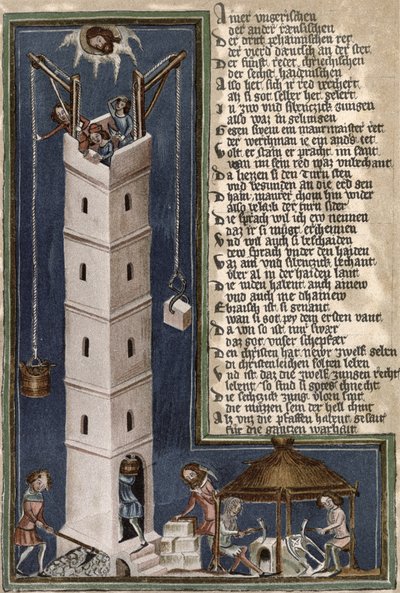 Ainer vngerischen
der ander ræusischen
Der drit zehannischen ret
der vierd dæutsch an der stet
Der funft redet chriechischen
der sechst haidenischen
Also het sich ir red verchert
als si got selber het gelert
In zwo vnd sibenczk zungen
also waz in gelungen
Gegen swem ein maurmaister ret
der verstuend
Wolt er stain er pracht im sant
wan im sein red waz vnbechant
Da liezzen si den turn sten
vnd begunden an die erd gen
dhain maurer chom hin wider
also plaib der turn sider
Die sprach wil ich ew nennen
daz ir si mugt erchennen
Vnd wil auch ew beschaiden
dew sprach vnder den haiden
Waz auf vnd sibenczk bechant
vber al in der haiden lant
Die iuden habent auch ainew
vnd auch nie dhainew
Ebraisch ist si genant
wan si got rey dem ersten vant
Da von so ist mir swær
daz got vnser schepfær
Den christen hat newr zwelf geben
di christenleichen sollen leben
Vnd ist daz die zwelf zungen recht
lebent so sind si gotes chnecht
die sechczk zung vloren sint
die muzzen sein der hell chint
Als vns die pfaffen habent gesait
fur die ganczen warhait